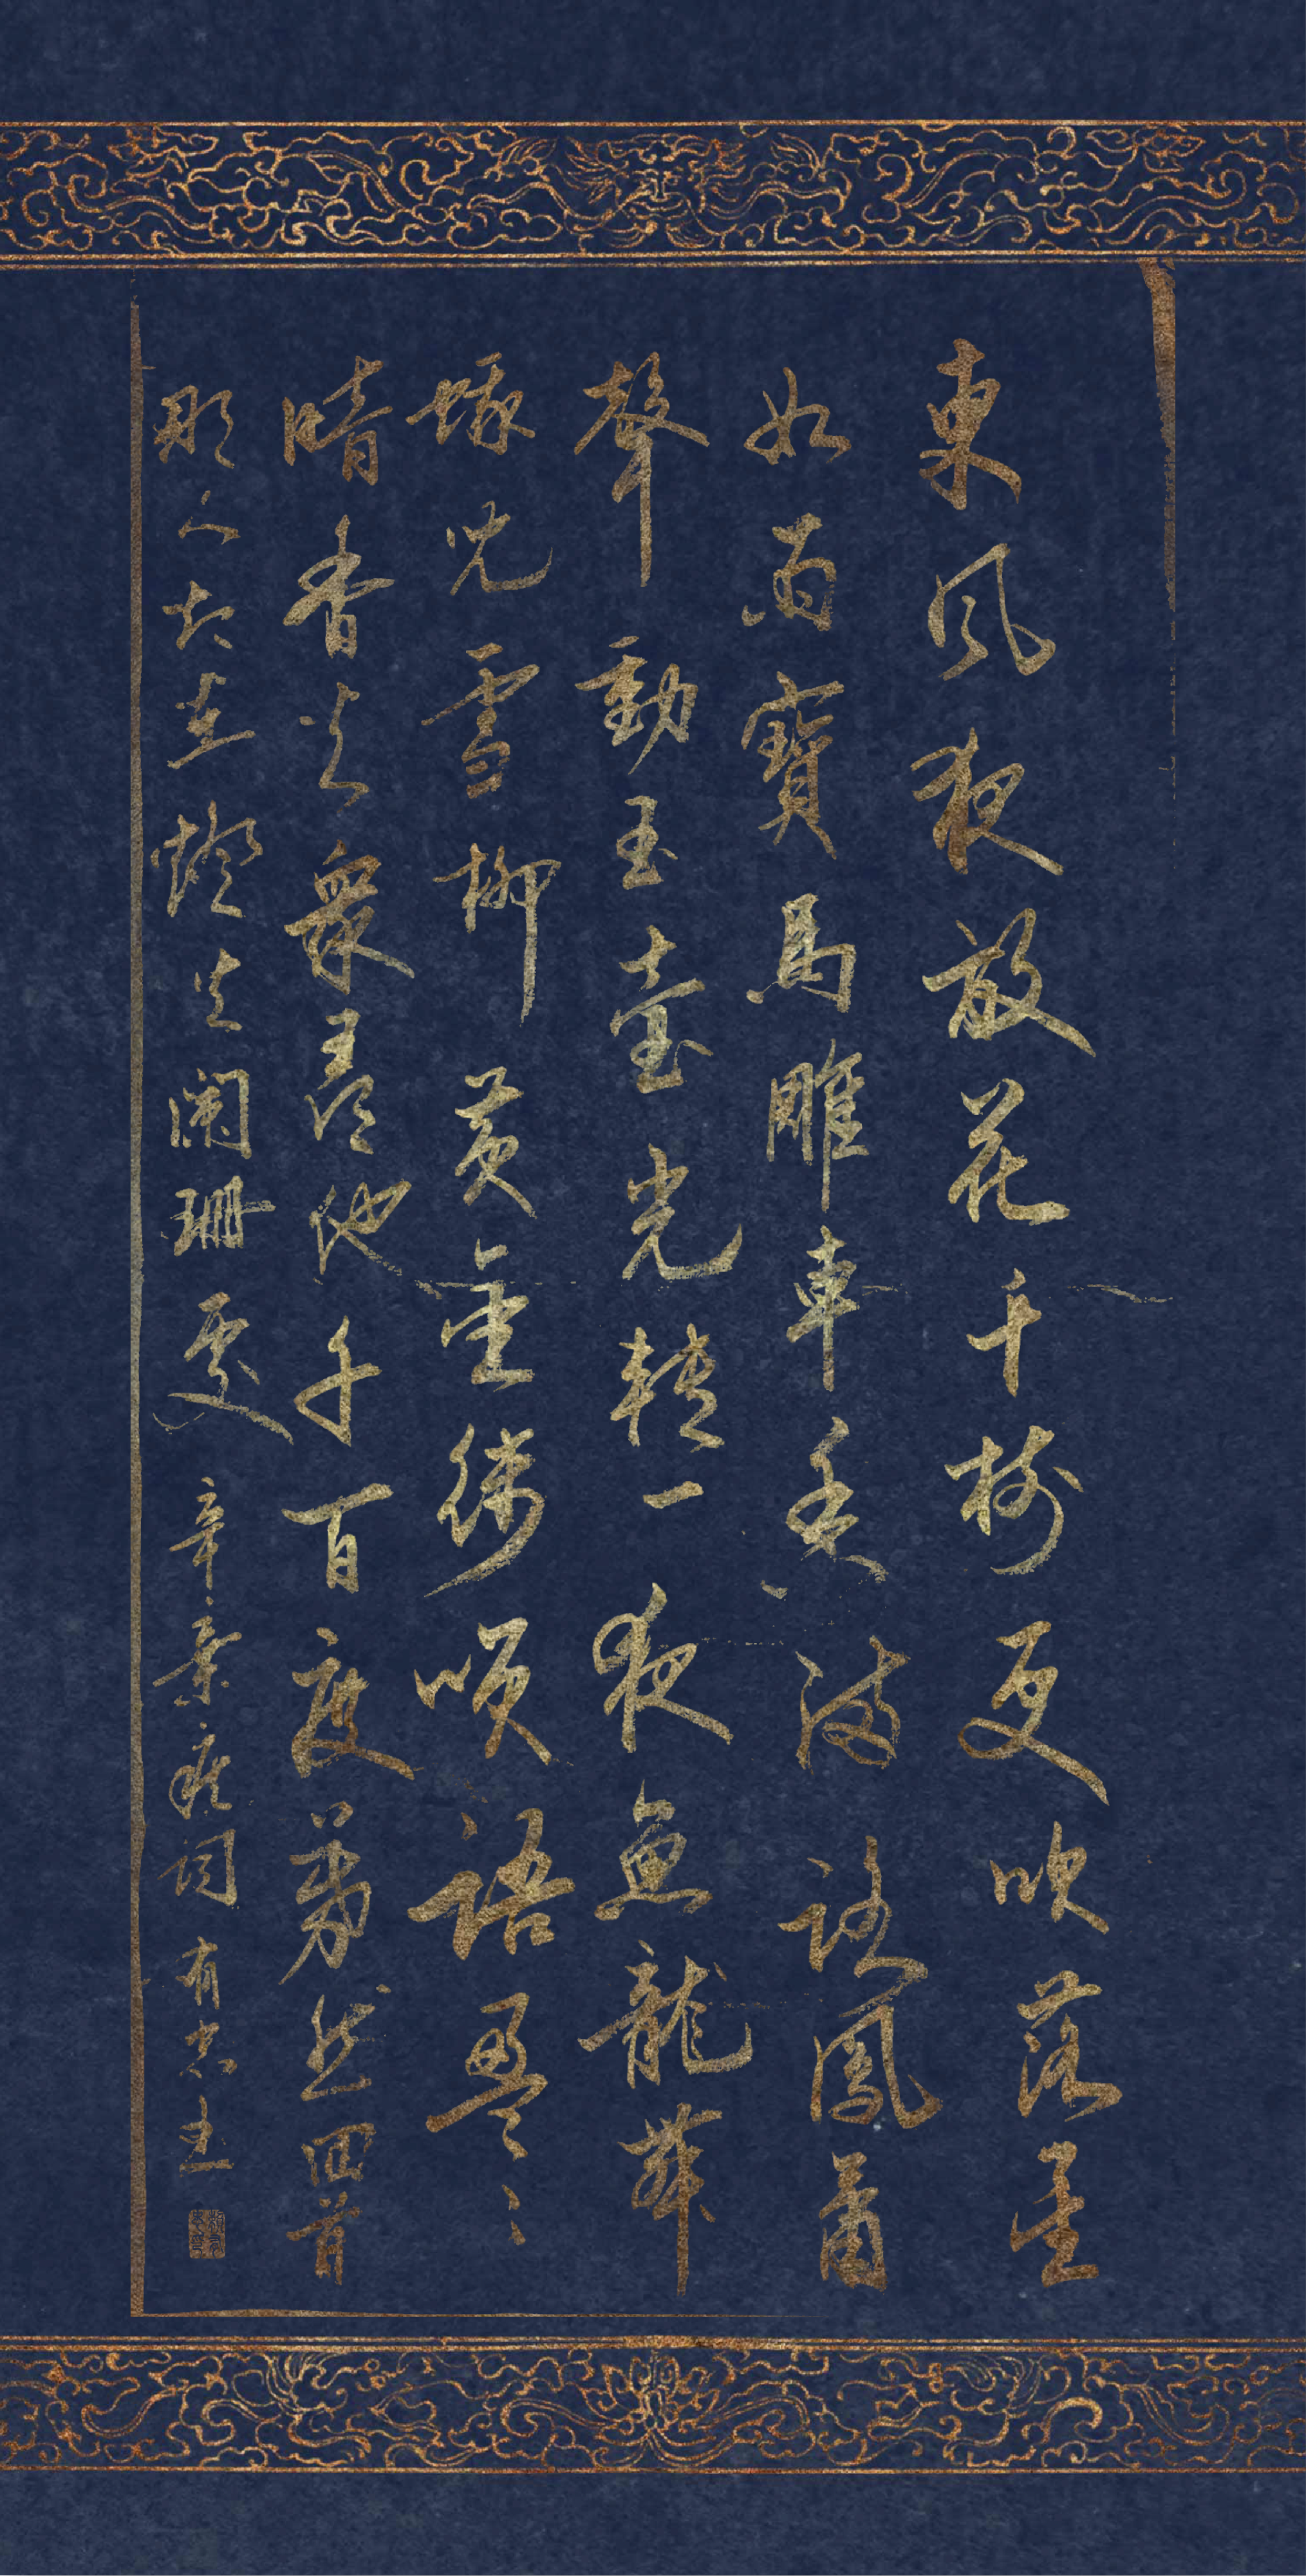 東風夜放花千樹更吹落星
如雨寶馬雕車香滿路鳳簫
聲動玉壺光轉一夜魚龍舞
蛾兒雪柳黃金縷咲語盈〻
暗香去衆尋他千百度驀然回首
那人却在燈火闌珊處 辛棄疾詞 有忠書